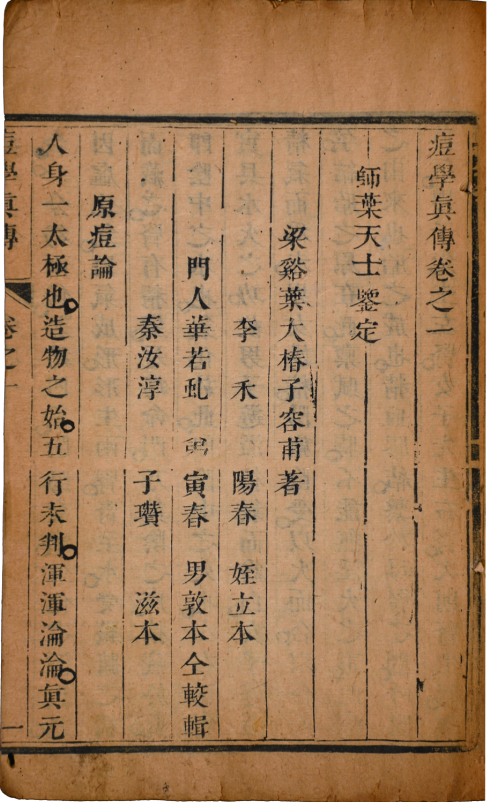 痘學眞傳卷之一
師葉天士鑒定
梁谿葉大椿子容甫著
李禾 陽春 姪立本
門人華若虬 男 寅春 男敦本仝較輯
秦汝淳 子瓚 滋本
原痘論
人身一太極也造物之始五行未判渾渾淪淪眞元
痘學眞傳 卷之一 一